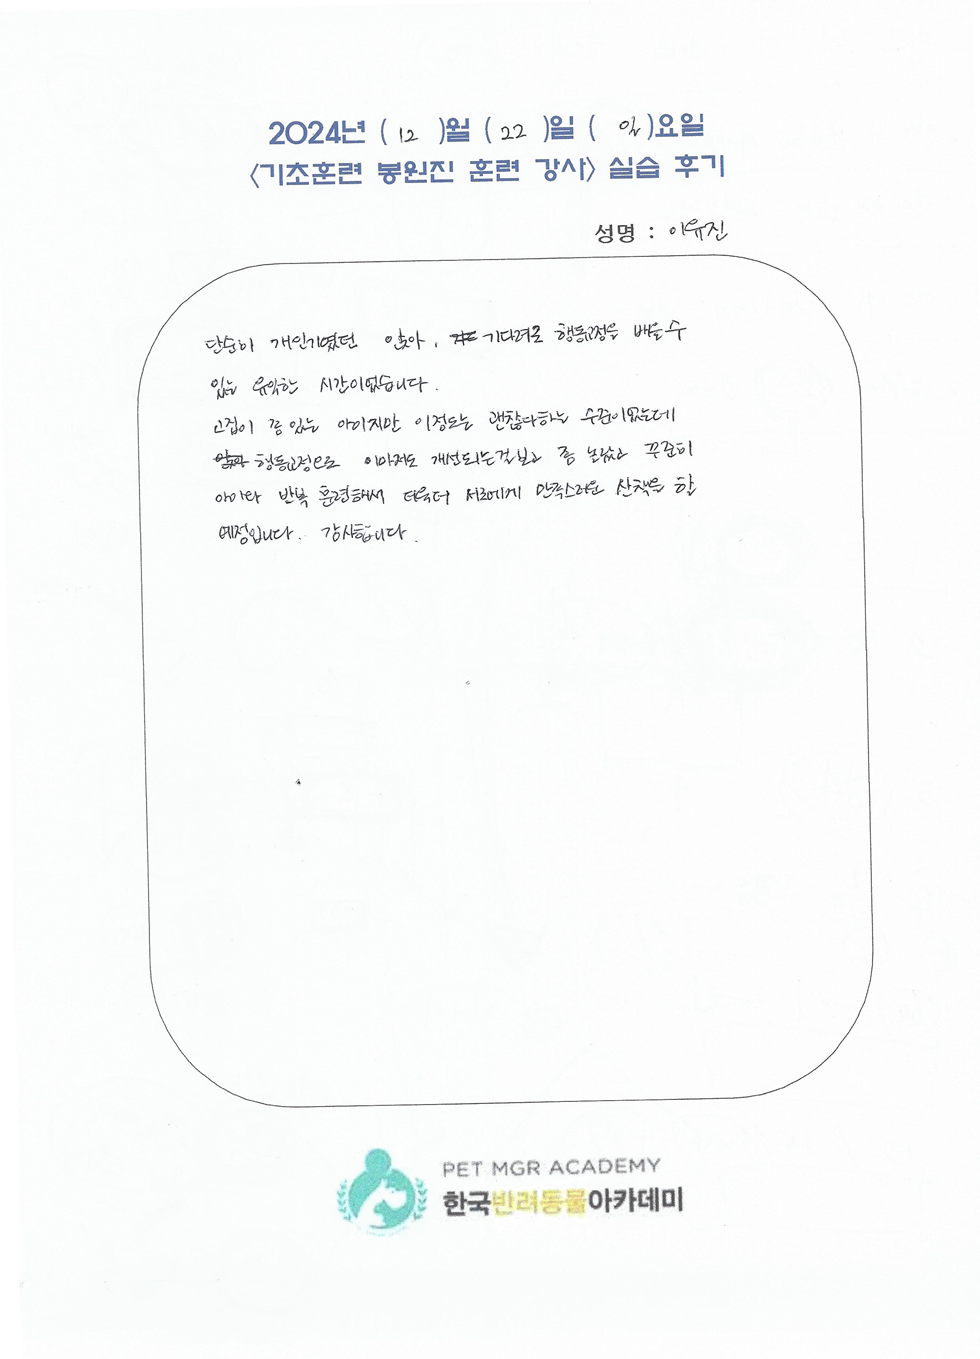 2024년 ( 12 )월 ( 22 )일 ( 일 )요일
<기초훈련 봉원진 훈련 강사> 실습 후기
성명 : 이유진
단순히 개인기였던 앉아, 기다려로 행동교정을 배울수
있는 유익한 시간이었습니다.
고집이 좀 있는 아이지만 이정도는 괜찮다하는 수준이었는데
행동교정으로 이마저도 개선되는걸보고 좀 놀랐고 꾸준히
아이와 반복 훈련해서 더욱더 서로에게 만족스러운 산책을 할
예정입니다. 감사합니다.
PET MGR ACADEMY
한국반려동물아카데미